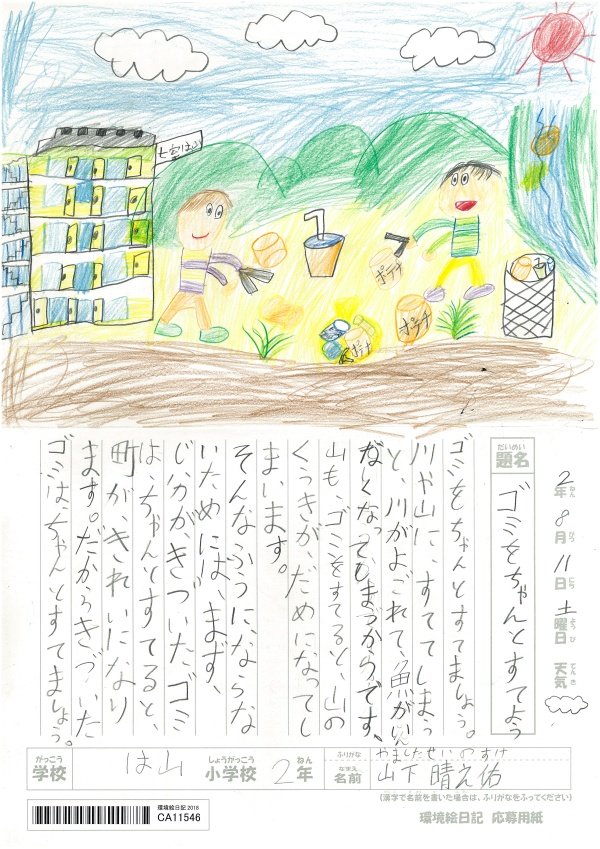 ポテチ
ポテチ
ポテチ
2年8月11日 土曜日 天気
ねん がつ にち ようび てんき
だいめい
題名 ゴミをちゃんとすてよう
ゴミをちゃんとすてましょう。
川や山に、すててしまう
と、川がよごれて、魚が
なくなって
山も、ゴミをすてると、山の
くうきが、だめになってし
まいます。
そんなふうにならな
いためには、まず、
じぶんが、きづいたゴミ
は、ちゃんとすてると、
町が、きれいになり
ます。だからきづいた
ゴミは、ちゃんとすてましょう。
がっこう しょうがっこう ねん
学校 は山 小学校 2年
ふりがな やましたせいのすけ
なまえ
名前 山下 晴之佑
(漢字で名前を書いた場合は、ふりがなをふってください)
環境絵日記 応募用紙
環境絵日記 2018
CA11546